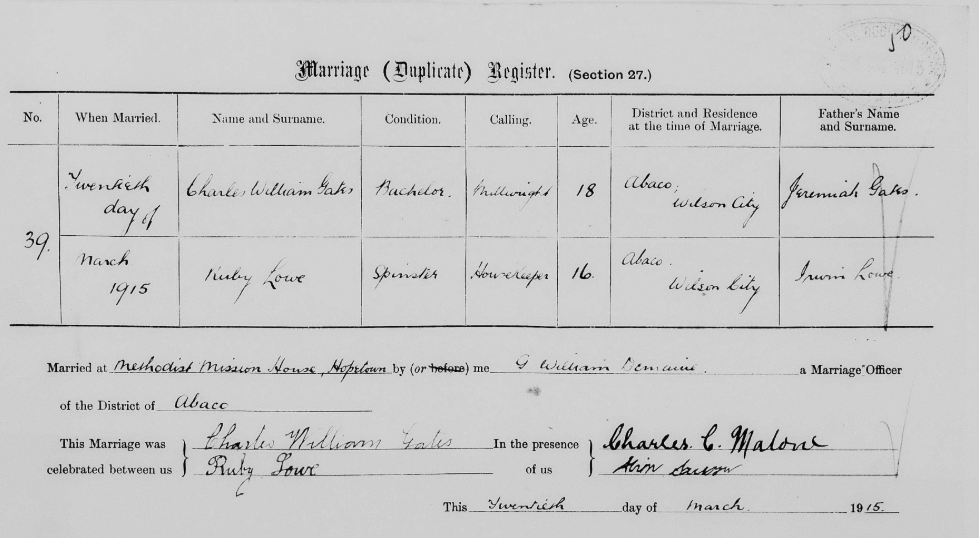 50
Marriage (Duplicate) Register. (Section 27.)
No. When Married. Name and Surname. Condition. Calling. Age. District and Residence at the time of Marriage. Father's Name and Surname.
39. Twentieth day of March 1915
Charles William Gates Bachelor. Millwright 18 Abaco, Wilson City Jeremiah Gates.
Ruby Lowe Spinster Housekeeper 16. Abaco. Wilson City Irwin Lowe
Married at Methodist Mission House, Hopetown by (or before) me G William Demaine. a Marriage Officer
of the District of Abaco
This Marriage was celebrated between us
Charles William Gates
Ruby Lowe
In the presence of us
Charles. C. Malone
This Twentieth day of March. 1915.